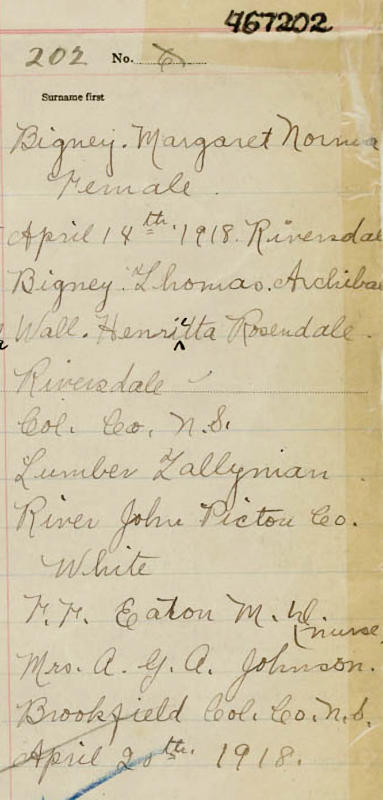 467202
202 No. 6
Surname first
Bigney. Margaret Norma
Female.
April 14th 1918. Riversdal
Bigney. Thomas. Archiba
Wall. Henritta Rosendale.
Riversdale
Col. Co. N.S.
Lumber Tallyman.
River John Pictou Co.
White
F. F. Eaton M.D.
(nurse
Mrs. A. G. A. Johnson.
Brookfield Col. Co. N.S.
April 20th. 1918.